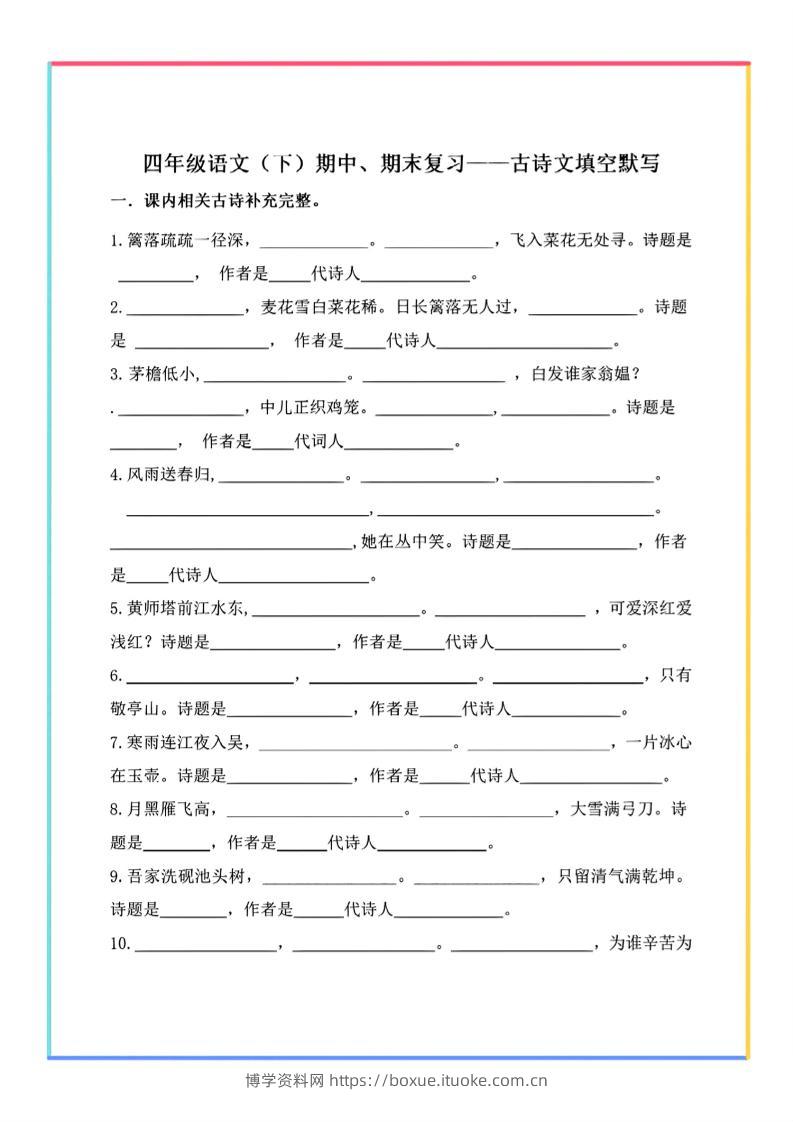 四年级语文（下）期中、期末复习——古诗文填空默写
一．课内相关古诗补充完整。
1.篱落疏疏一径深，_____________。_____________，飞入菜花无处寻。诗题是
_________， 作者是_____代诗人_____________。
2.______________，麦花雪白菜花稀。日长篱落无人过，_____________。诗题
是 ________________， 作者是_____代诗人_____________________。
3. 茅檐低小,_________________。_________________ ，白发谁家翁媪？
._______________，中儿正织鸡笼。______________,_____________。诗题是
________， 作者是_____代词人_____________。
4.风雨送春归,_______________。________________,__________________。
_____________________________,_________________________________。
_____________________________,她在丛中笑。诗题是_______________，作者
是_____代诗人__________________。
5.黄师塔前江水东,____________________。__________________ ，可爱深红爱
浅红？诗题是_______________，作者是_____代诗人_______________。
6.____________________，____________________。__________________，只有
敬亭山。诗题是_______________，作者是_____代诗人_____________。
7.寒雨连江夜入吴，_______________________。_________________，一片冰心
在玉壶。诗题是_______________，作者是______代诗人_________________。
8.月黑雁飞高，_____________________。________________，大雪满弓刀。诗
题是________，作者是______代诗人_____________。
9.吾家洗砚池头树，________________。_______________，只留清气满乾坤。
诗题是________，作者是______代诗人_____________。
10._________________，_________________。_________________，为谁辛苦为
博学资料网 https://boxue.ituoke.com.cn